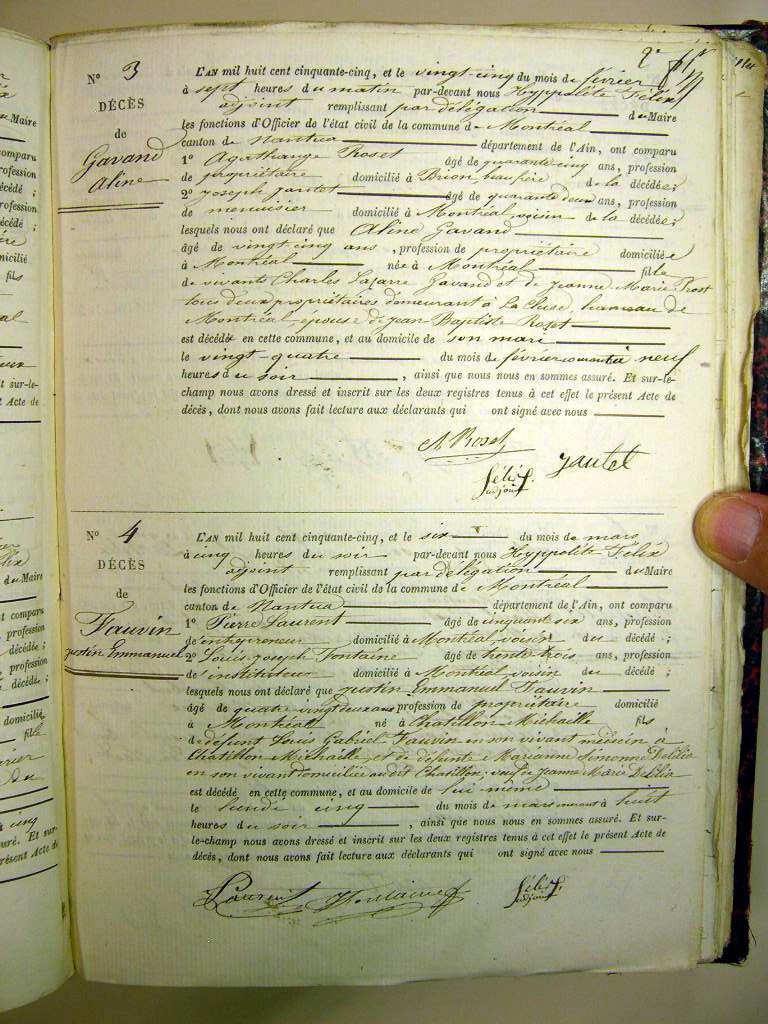 N° 3
DÉCÈS
de
Gavand
Aline
L'AN mil huit cent cinquante-cinq, et le vingt-cinq du mois de février
à sept heures du matin par-devant nous Hyppolite Félix
adjoint remplissant par délégation du Maire
les fonctions d'Officier de l'état civil de la commune de Montréal
canton de Nantua département de l'Ain, ont comparu
1° Agathange Roset âgé de quarante cinq ans, profession
de propriétaire domicilié à Brion beau frère de la décédée;
2° Joseph Jautet âgé de quarante deux ans, profession
de menuisier domicilié à Montréal voisin de la décédée;
lesquels nous ont déclaré que Aline Gavand
âgé de vingt cinq ans, profession de propriétaire domiciliée
à Montréal née à Montréal fille
de vivants Charles Lazarre Gavand et de Jeanne Marie Prost
tous deux propriétaires demeurant à La Cluse, hameau de
Montréal, épouse de Jean Baptiste Roset
est décédé en cette commune, et au domicile de son mari
le vingt-quatre du mois de février courant à neuf
heures du soir, ainsi que nous nous en sommes assuré. Et sur-le-
champ nous avons dressé et inscrit sur les deux registres tenus à cet effet le présent Acte de
décès, dont nous avons fait lecture aux déclarants qui ont signé avec nous
A. Roset
Jautet
Félix
adjoint
N° 4
DÉCÈS
de
Fauvin
Justin Emmanuel
L'AN mil huit cent cinquante-cinq, et le six du mois de mars
à cinq heures du soir par-devant nous Hyppolite Félix
adjoint remplissant par délégation du Maire
les fonctions d'Officier de l'état civil de la commune de Montréal
canton de Nantua département de l'Ain, ont comparu
1° Pierre Laurent âgé de cinquante six ans, profession
d'entrepreneur domicilié à Montréal voisin du décédé;
2° Louis Joseph Fontaine âgé de trente trois ans, profession
d'instituteur domicilié à Montréal voisin du décédé;
lesquels nous ont déclaré que Justin Emmanuel Fauvin
âgé de quatre vingt deux ans profession de propriétaire domicilié
à Montréal né à Chatillon Michaille fils
de défunt Louis Gabriel Fauvin en son vivant médecin à
Chatillon Michaille et de défunte Marianne Simonne Delilia
en son vivant domiciliée au dit Chatillon; veuf de Jeanne Marie Delilia
est décédé en cette commune, et au domicile de lui même
le lundi cinq du mois de mars courant à huit
heures du soir, ainsi que nous nous en sommes assuré. Et sur-
le-champ nous avons dressé et inscrit sur les deux registres tenus à cet effet le présent Acte de
décès, dont nous avons fait lecture aux déclarants qui ont signé avec nous
Laurent
Fontaine
Félix
adjoint